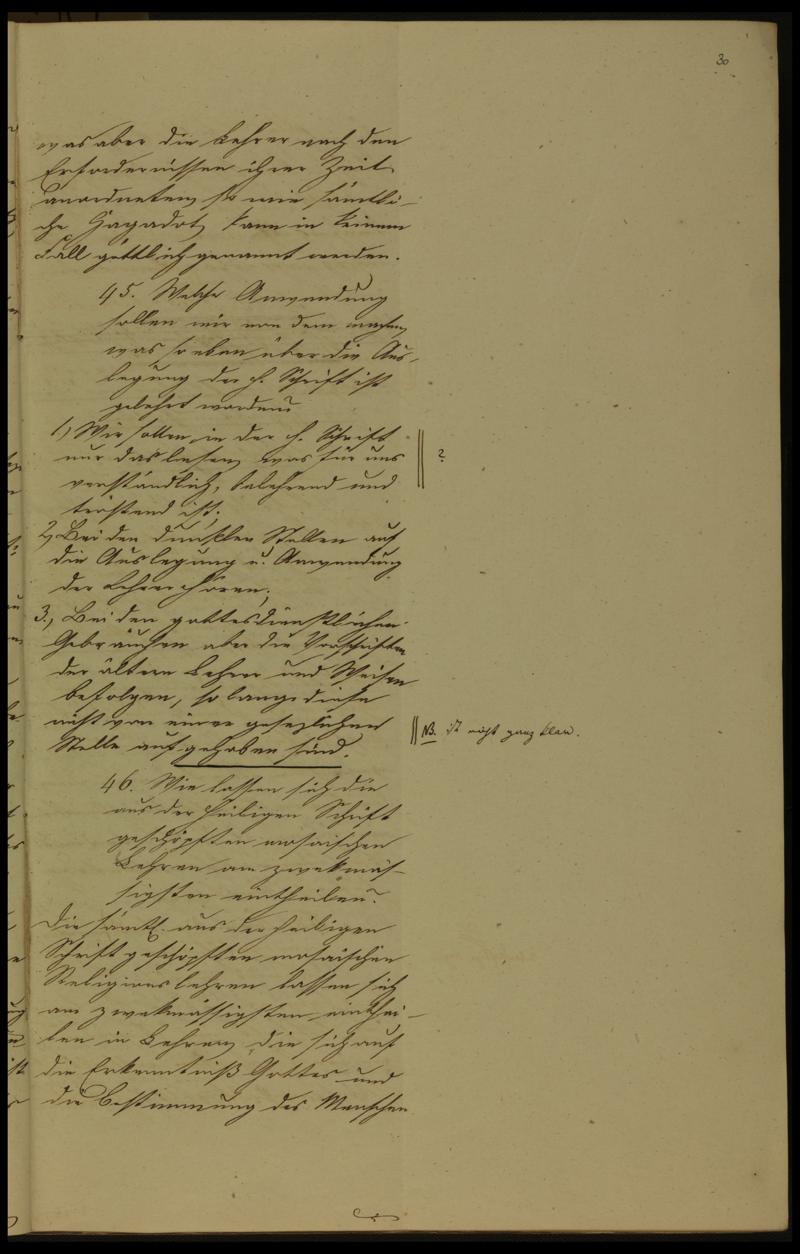 30
was aber die Lehrer nach den
Erfordernissen ihrer Zeit
anordneten, so wie sämtli-
che Hagadot, kann in keinem
Fall göttlich genannt werden.
45. Welche Anwendung
sollen wir von dem machen,
was so eben über die Aus-
legung der h. Schrift ist
gelehrt worden?
1) Wir sollen in der h. Schrift
nur das lesen, was für uns
verständlich, belehrend und
tröstend ist.
?
2) Bei den dunklen Stellen auf
die Auslegung u. Anwendung
der Lehrer hören;
3., Bei den gottesdienstlichen
Gebräuchen aber die Vorschriften
der ältern Lehrer und Weisen
befolgen, so lange diese
nicht von einer gesezlichen
Stelle aufgehoben sind.
NB. ist nicht ganz klar.
46. Wie lassen sich die
aus der heiligen Schrift
geschöpften mosaischen
Lehren am zwekmäs-
sigsten eintheilen?
Die sämtl. aus der heiligen
Schrift geschöpften mosaischen
Religionslehren lassen sich
am zwekmässigsten einthei-
len in Lehren, die sich auf
die Erkenntniß Gottes und
die Bestimmung des Menschen